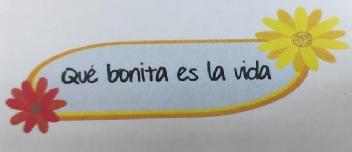 Qué bonita es la vida